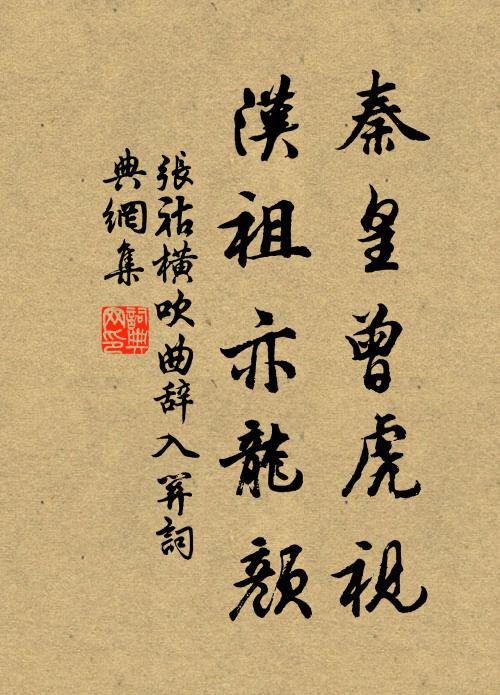 秦皇曾虎視
漢祖亦龍顏
張祜橫吹曲辞入關詞
典網集
詞典
网印